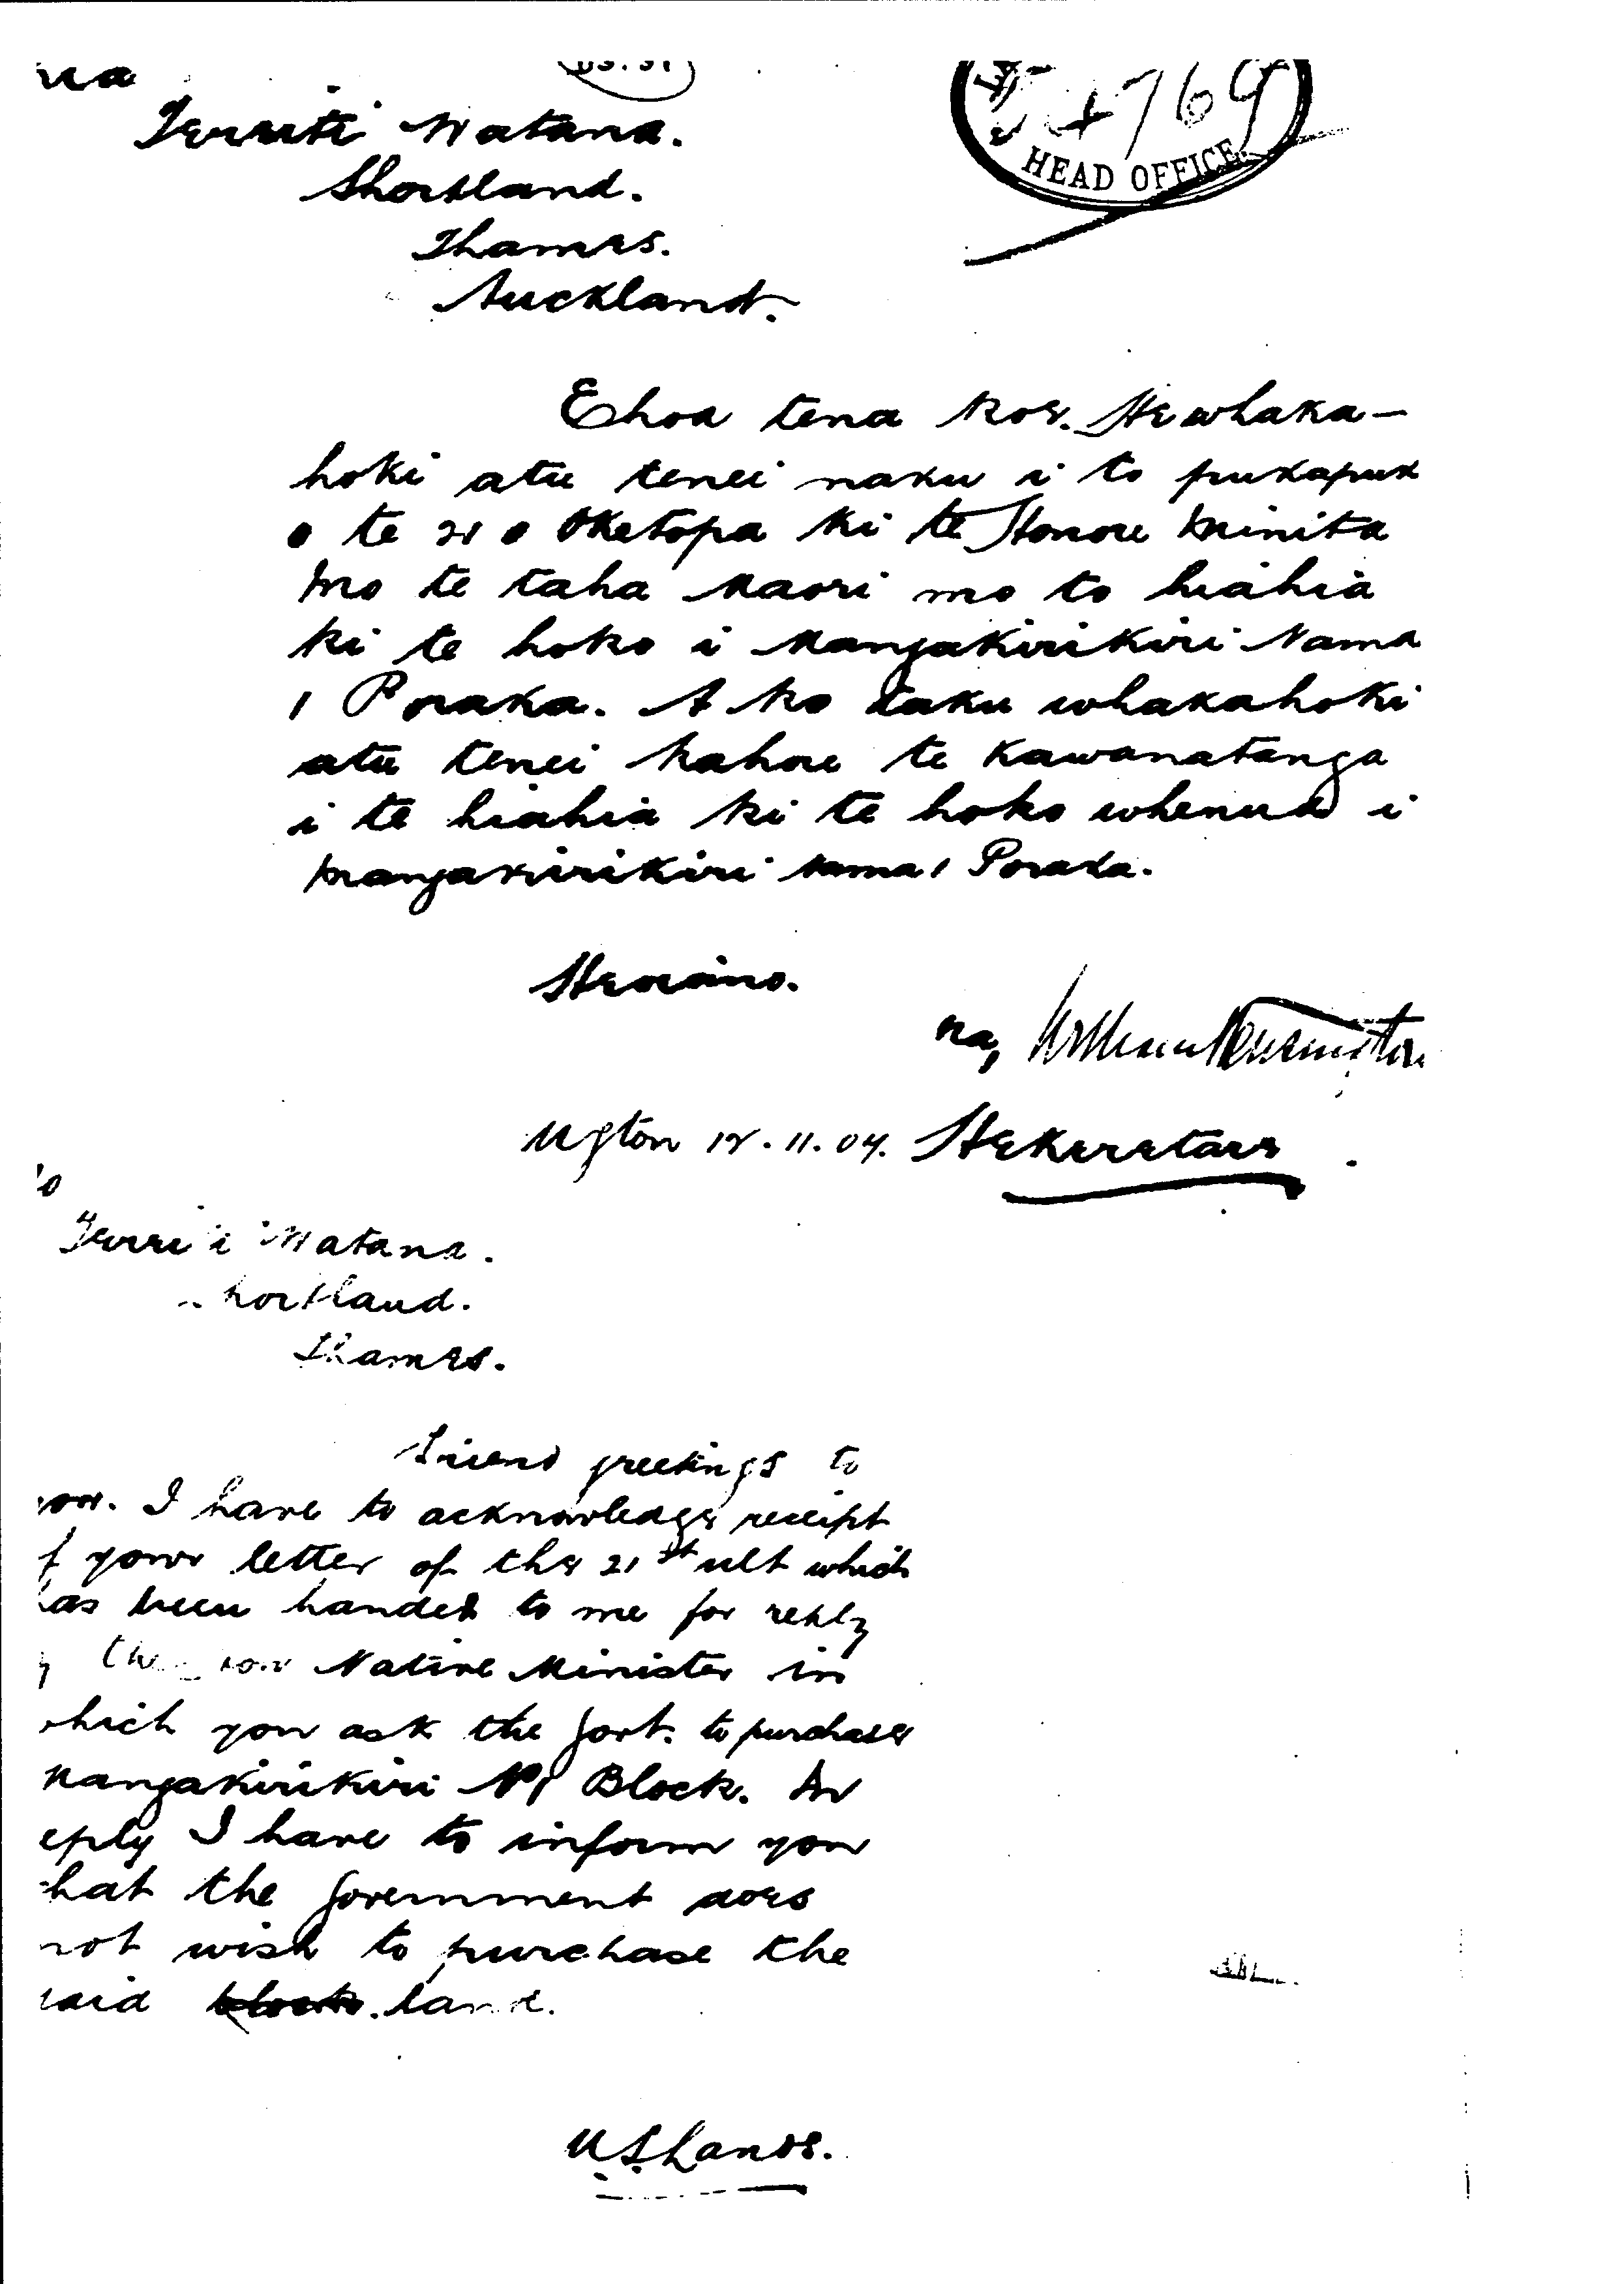 Watana.
4769
HEAD OFFICE.
Shortland.
Thames.
Auckland.
E hoa tena koe. He whaka-
hoki atu tenei naku i to pukapuk
o te 21 o Oketopa ki te Honore Minita
mo te taha Maori mo to hiahia
ki te hoko i Mangakirikiri Nama
1 Poraka. A ko taku whakahoki
atu tenei kahore te Kawanatanga
i te hiahia ki te hoko whenua i
Mangakirikiri Nama 1 Poraka.
Heoiano.
Na, William Kensington
Wgton 12.11.04. Hekeretare
Watana.
hortland.
Thames.
Friend greetings to
you. I have to acknowledge receipt
f your letter of the 21st ult which
has been handed to me for reply
the Hon Native Minister in
which you ask the Govt. to purchase
Mangakirikiri No 1 Block. In
eply I have to inform you
hat the Government does
not wish to purchase the
said block. land.
U.S. Lands.